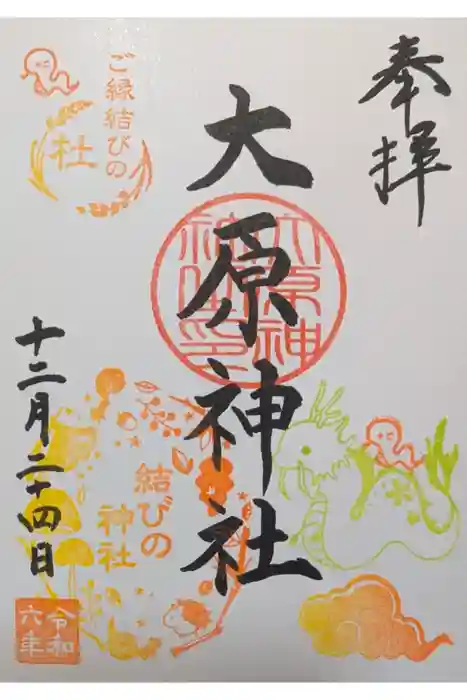 奉拝
大原神社
ご縁結びの
杜
結びの
神社
十二月二十四日
令和
六年